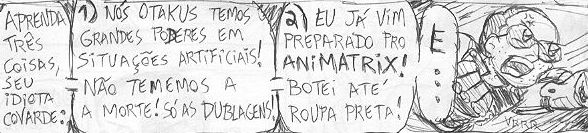 APRENDA
TRÊS
COISAS,
SEU
IDIOTA
COVARDE:
1) NÓS OTAKUS TEMOS
GRANDES PODERES EM
SITUAÇÕES ARTIFICIAIS!
NÃO TEMEMOS A
A MORTE! SÓ AS DUBLAGENS!
2) EU JÁ VIM
PREPARADO PRO
ANIMATRIX!
BOTEI ATÉ
ROUPA PRETA!
E
...
VRRR